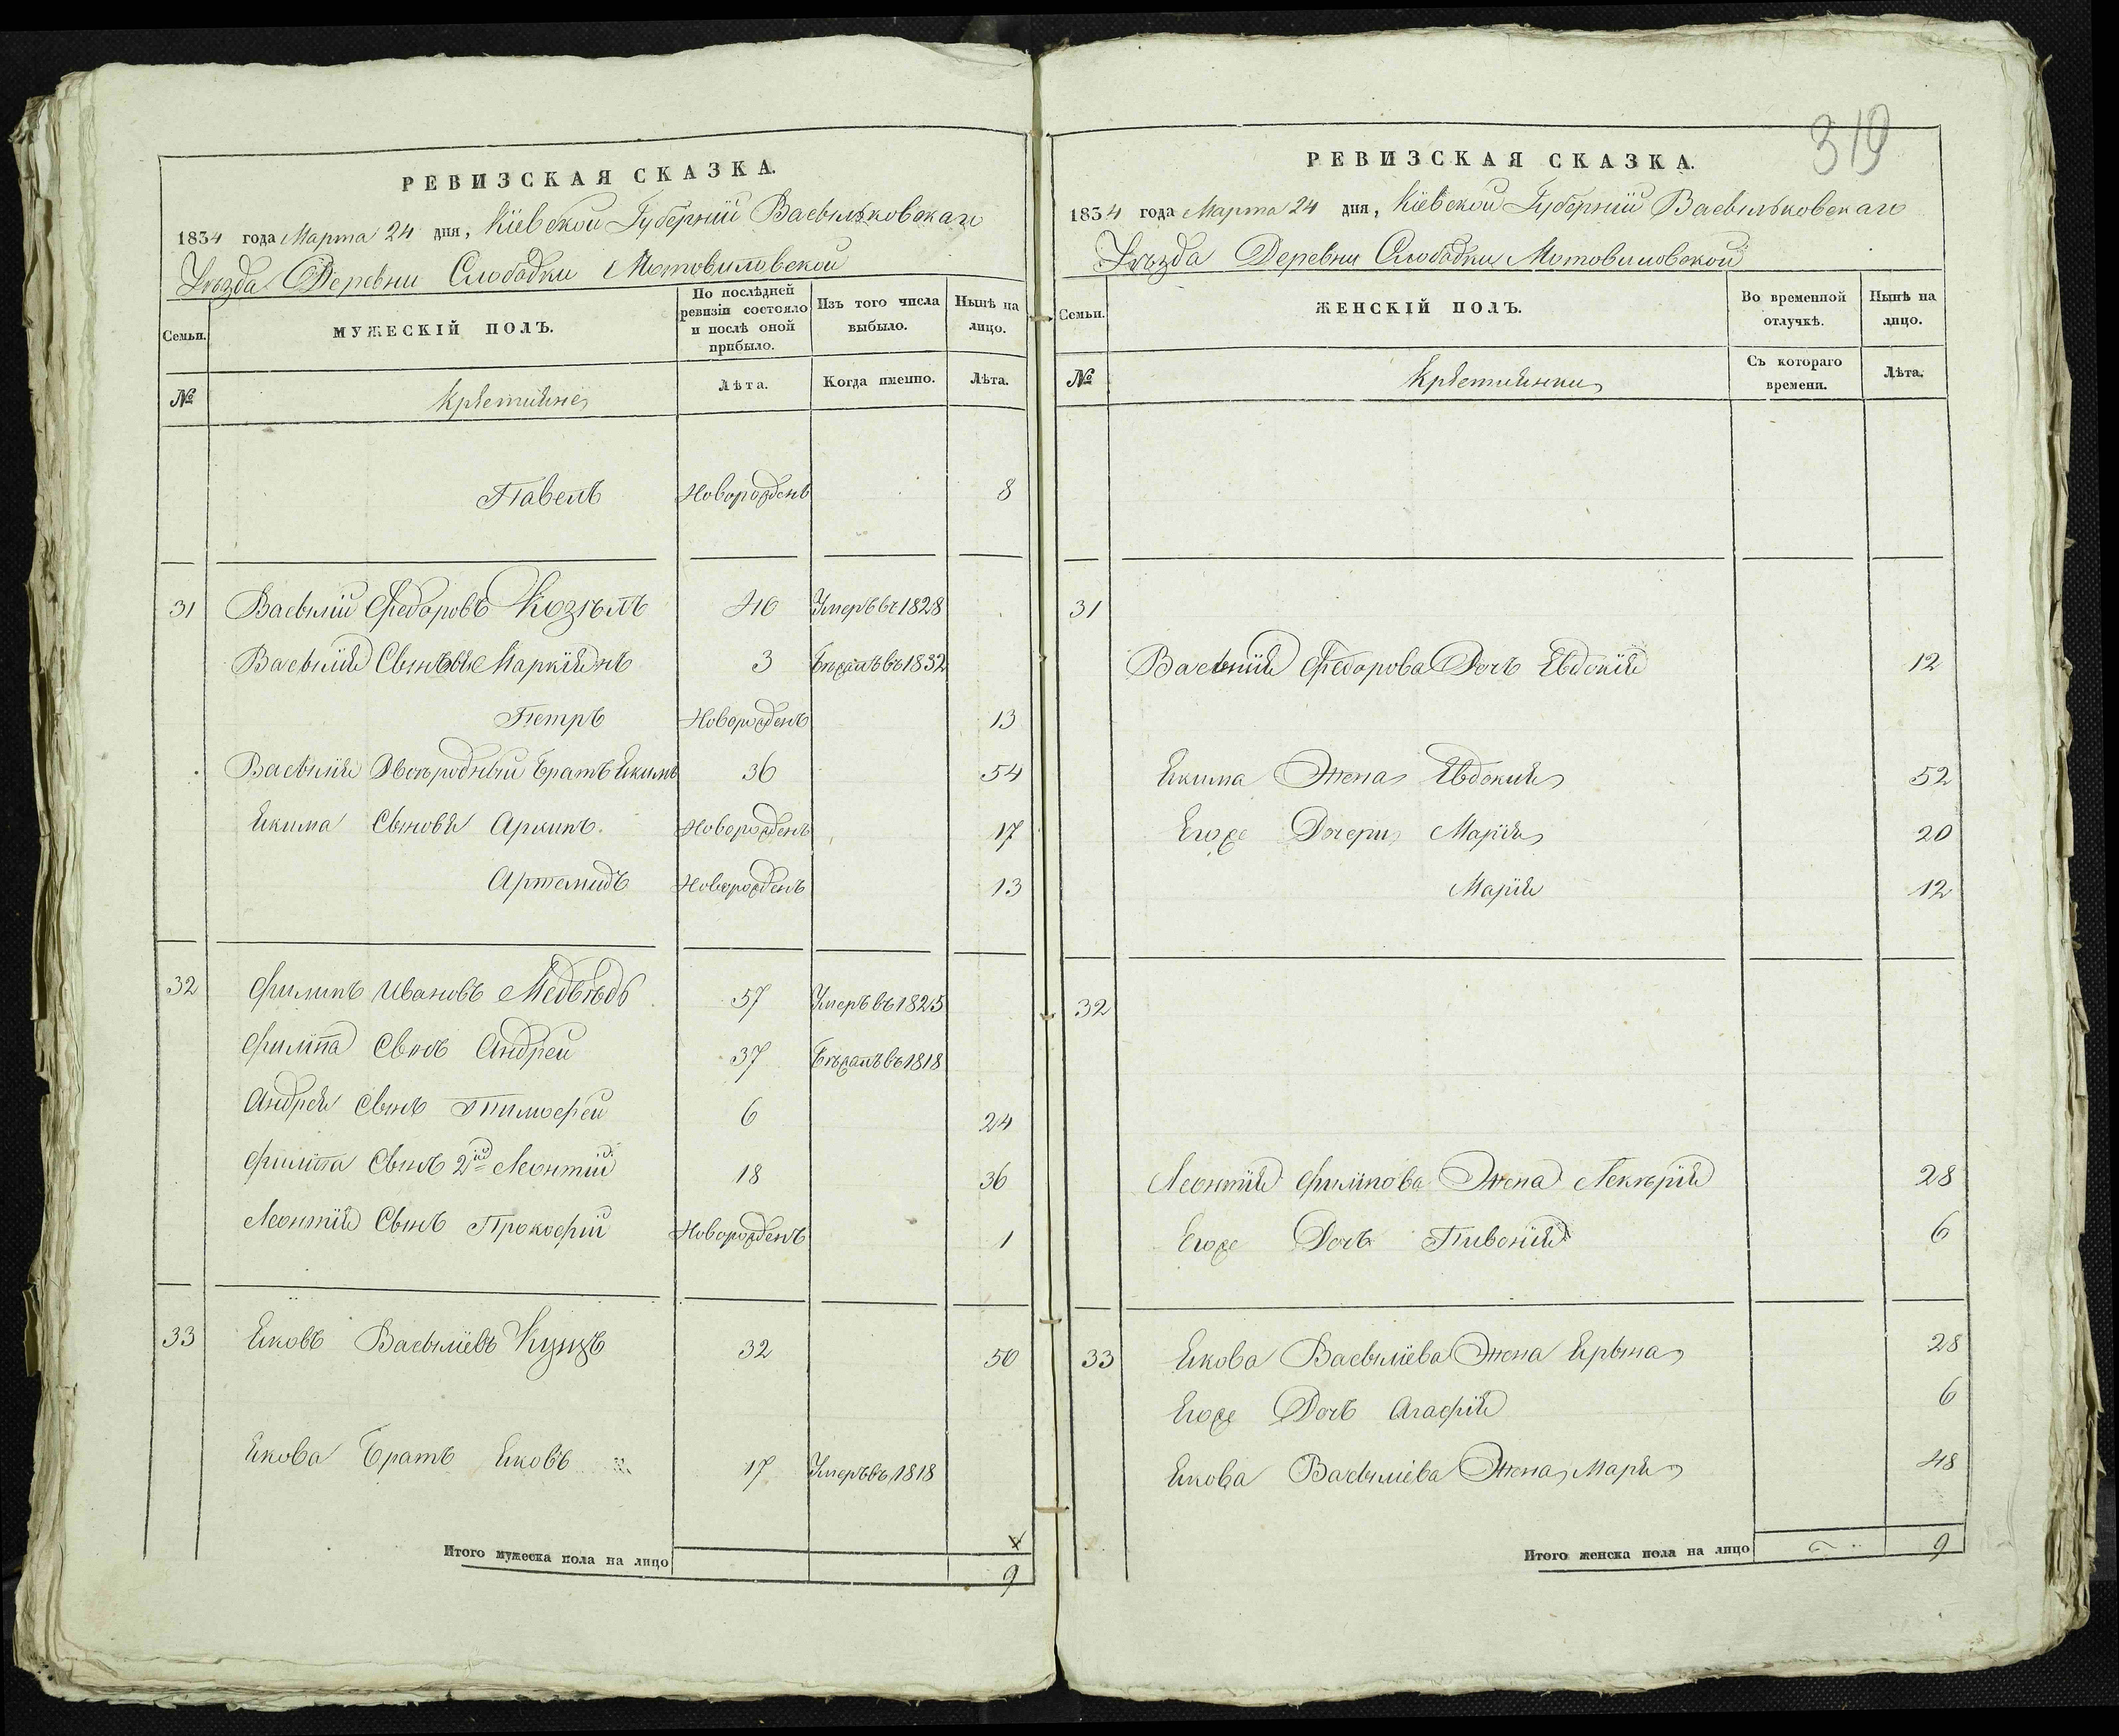 РЕВИЗСКАЯ СКАЗКА.
1834 года Марта 24 дня, Кіевской Губерніи Васыльковскаго
Уѣзда Деревни Слободки Мотовиловской
Семьи.
МУЖЕСКІЙ ПОЛЪ.
По послѣдней ревизіи состояло и послѣ оной прибыло.
Изъ того числа выбыло.
Нынѣ на лицо.
№
Крестяне
Лѣта.
Когда именно.
Лѣта.
Павелъ Новорожденъ 8
31 Васылій Федоровъ Козѣлъ 40 Умеръ въ 1828
Васылія Сыновья Маркіянъ 3 Бѣжалъ въ 1832
Петръ Новорожденъ 13
Васылія Двоюродный Братъ Якимъ 36 54
Якима Сыновя Архипъ Новорожденъ 17
Артемидъ Новорожденъ 13
32 Филипъ Ивановъ Медвѣдь 57 Умеръ въ 1825
Филипа Сынъ Андрей 37 Бѣжалъ въ 1818
Андрея Сынъ Тимофей 6 24
Филипа Сынъ 2й Леонтій 18 36
Леонтія Сынъ Прокофій Новорожденъ 1
33 Яковъ Васылиевъ 32 50
Якова Братъ Яковъ 17 Умеръ въ 1818
Итого мужеска пола на лицо 9
319
РЕВИЗСКАЯ СКАЗКА.
1834 года Марта 24 дня, Кіевской Губерніи Васыльковскаго
Уѣзда Деревни Слободки Мотовиловской
Семьи.
ЖЕНСКІЙ ПОЛЪ.
Во временной отлучкѣ.
Нынѣ на лицо.
№
Крестянки
Съ котораго времени.
Лѣта.
31
Васылія Федорова Дочь Евдокія 12
Якима Жена Евдокия 52
Егоже Дочери Марія 20
Марія 12
32
Леонтія Филипова Жена Лекѣрія 28
Егоже Дочь 6
33 Якова Васылиева Жена Ярына 28
Егоже Дочь Агафія 6
Якова Васылиева Жена Маря 48
Итого женска пола на лицо 9